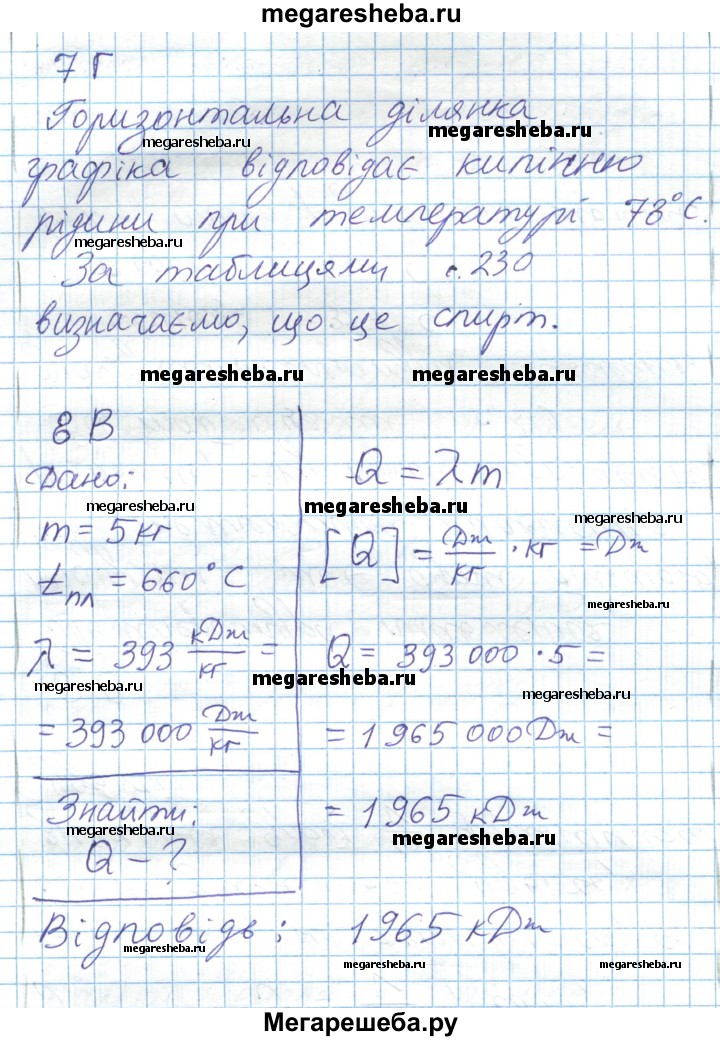 megaresheba.ru
7 Г
Горизонтальна ділянка
megaresheba.ru
megaresheba.ru
графіка відповідає кипінню
рідини при температурі 78°С.
megaresheba.ru
megaresheba.ru
За таблицями с. 230
визначаємо, що це спирт.
megaresheba.ru megaresheba.ru
8 В
Дано:
megaresheba.ru
m = 5 кг
t пл = 660°С
λ = 393 кДж/кг =
megaresheba.ru
= 393 000 Дж/кг
Знайти:
megaresheba.ru
Q – ?
Q = λm
megaresheba.ru
megaresheba.ru
[Q] = Дж/кг · кг = Дж
megaresheba.ru
Q = 393 000 · 5 =
megaresheba.ru
megaresheba.ru
= 1 965 000 Дж =
= 1965 кДж
megaresheba.ru
Відповідь: 1965 кДж
megaresheba.ru
megaresheba.ru
megaresheba.ru
Мегарешеба.ру